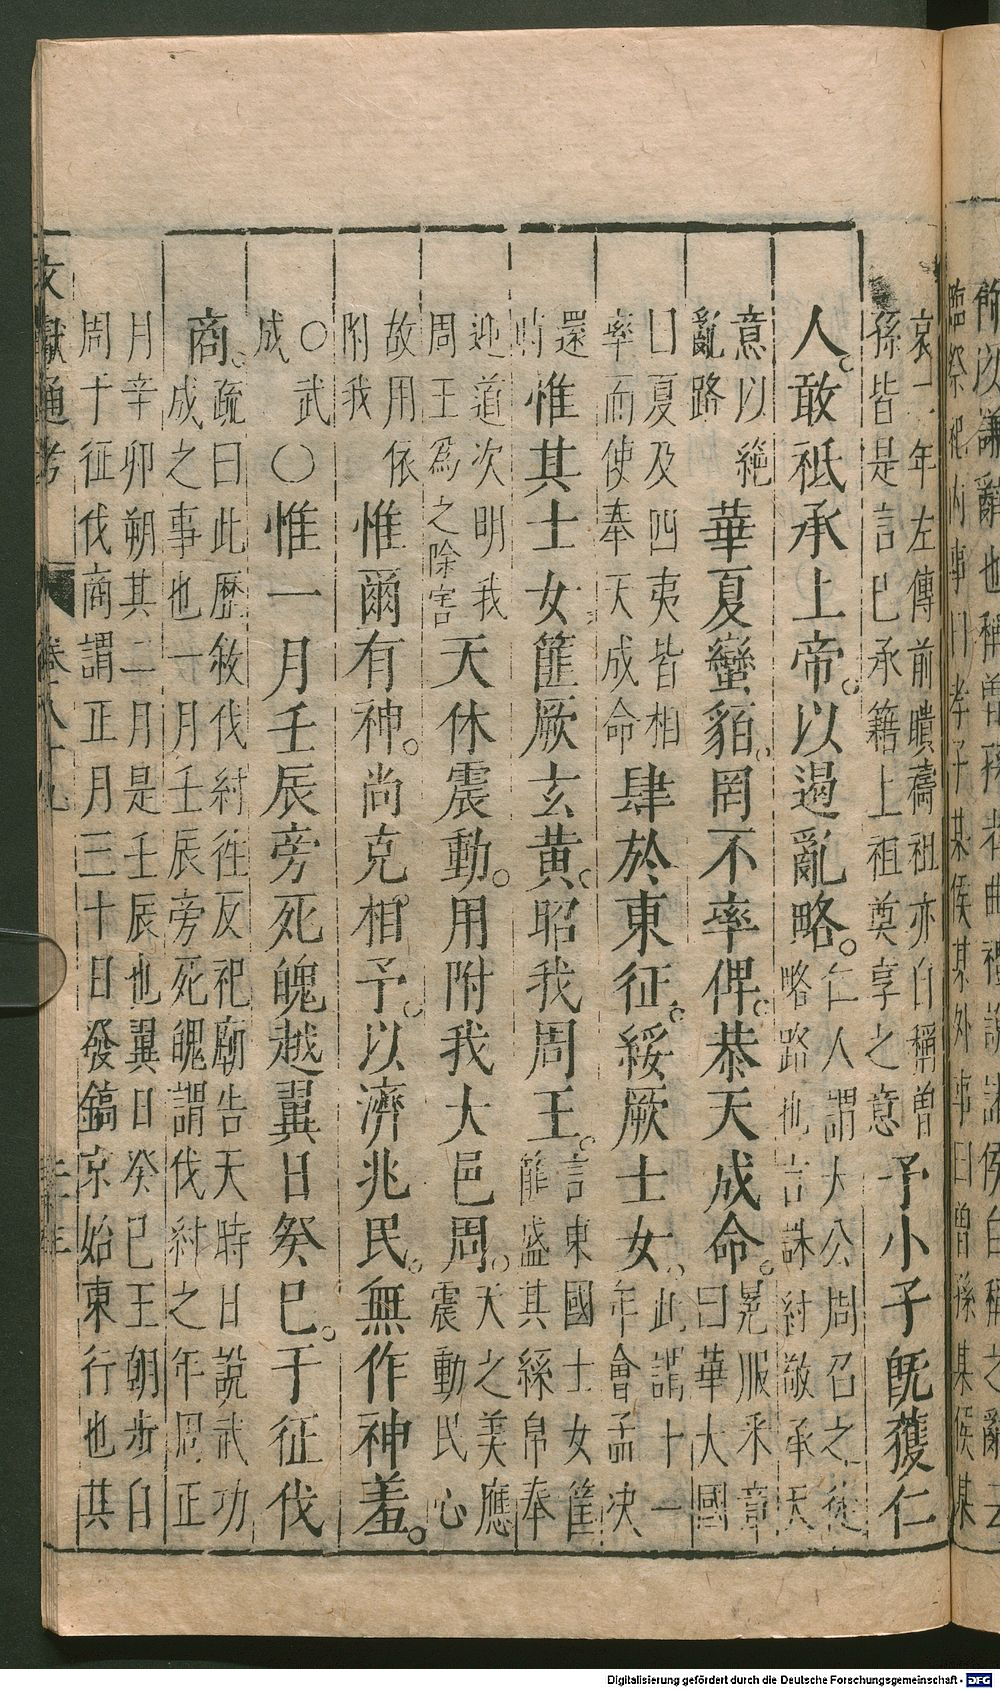 所以謙辭也稱曾孫者曲禮說諸侯自稱之辭云
臨祭祀內事曰孝子某侯某外事曰曾孫某侯某
哀二年左傳前瞶禱祖亦自稱曾孫皆是言已承籍上祖奠享之意予小子旣獲仁
人敢祗承上帝以遏亂略仁人謂大公周召之徒略路也言誅紂敬承天
意以絶亂路華夏蠻貊罔不率俾恭天成命冕服采章曰華大國
曰夏及四夷皆相率而使奉天成命肆於東征綏厥士女此謂十一年會孟決
還時惟其士女篚厥玄黃昭我周王言東國士女筐篚盛其絲帛奉
迎道次明我周王爲之除害天休震動用附我大邑周天之美應震動民心
故用依附我惟爾有神尚克相予以濟兆民無作神羞
○武成○惟一月壬辰旁死魄越翼日癸巳于征伐
商疏曰此歷敘伐紂往反祀廟告天時日說武功成之事也一月壬辰旁死魄謂伐紂之年周正
月辛卯朔其二月是壬辰也翼日癸巳王朝步自周十征伐商謂正月三十日發鎬京始東行也其
文獻通考 卷八十九
Digitalisierung gefördert durch die Deutsche Forschungsgemeinschaft - DFG